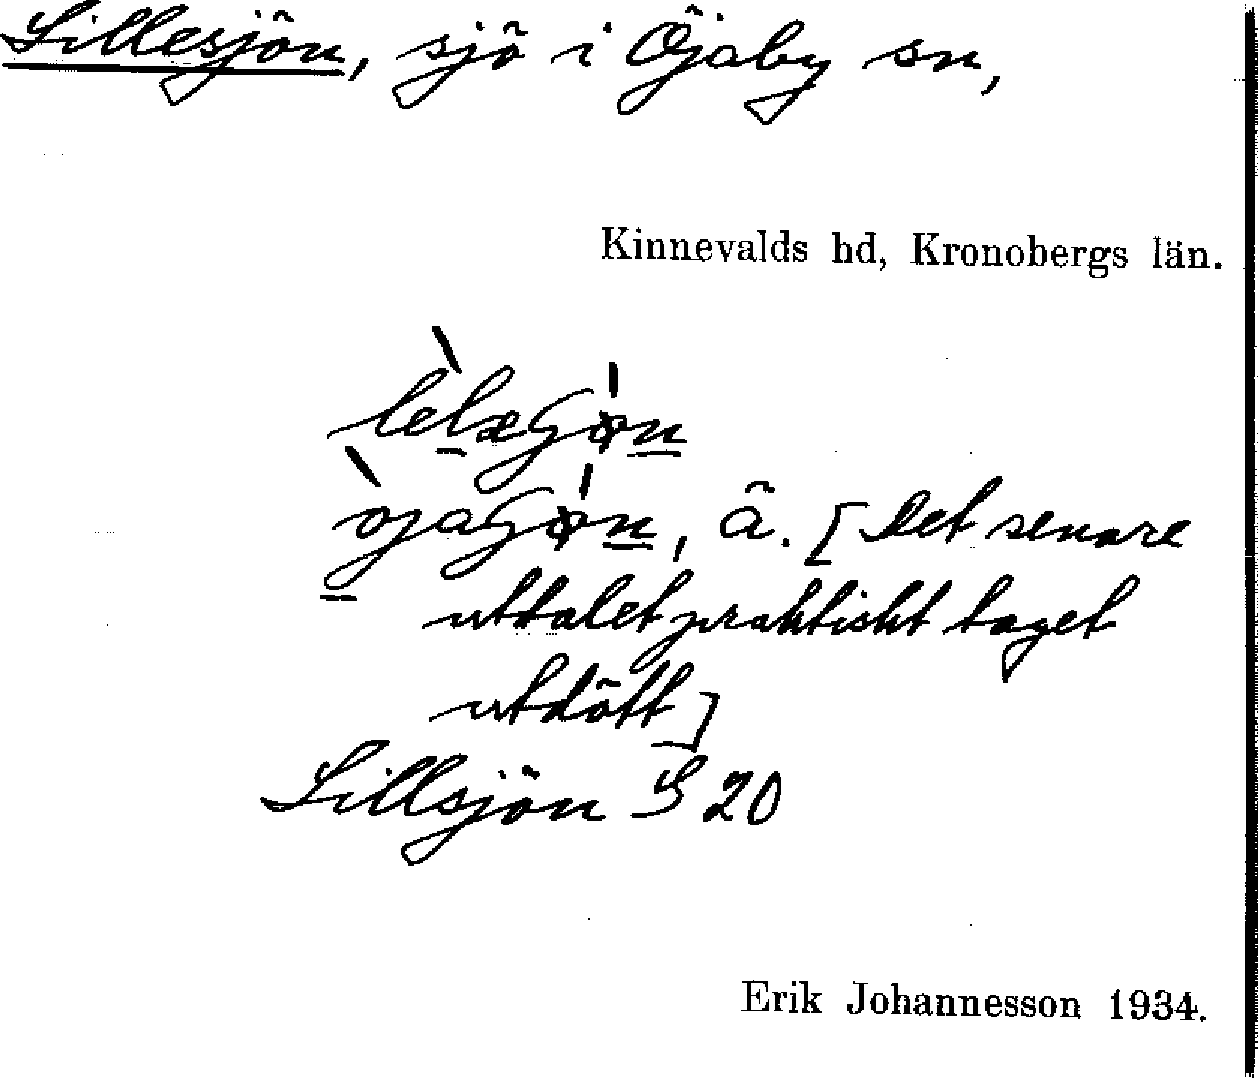 Lillesjön, sjö i Öjaby sn,
Kinnevalds hd, Kronobergs län.
ā. [Det senare
uttalet praktiskt taget
utdött]
Lillsjön S 20
Erik Johannesson 1934.